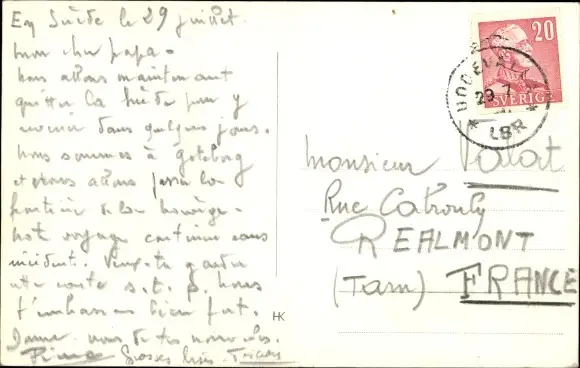 En Suède le 29 juillet
mon cher papa -
Nous allons maintenant
quitter la Suède pour y
revenir dans quelques jours.
Nous sommes à Goteborg
et nous allons passer la
frontière de la Norvège -
Not voyage continue sans
incident. Veux-tu garder
cette carte s.t.p. Nous
t'embrassons bien fort.
donne-nous de tes nouvelles.
Grosses bises -
20
SVERIGE
UDDEVALLA
29.7
LBR
Monsieur Valat
Rue
REALMONT
(Tarn) FRANCE
HK